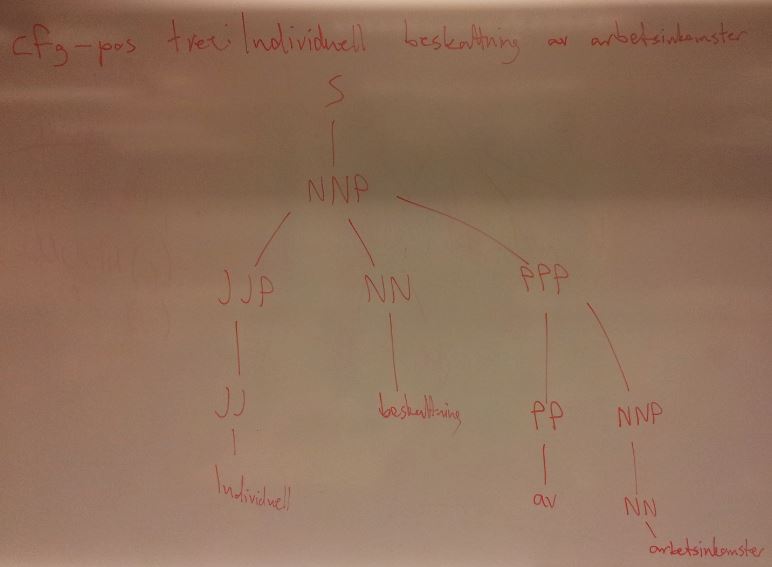 cfg-pos tree: Individuell beskattning av arbetsinkomster
S
NNP
JJP NN PPP
JJ beskattning PP NNP
Individuell av NN
arbetsinkomster